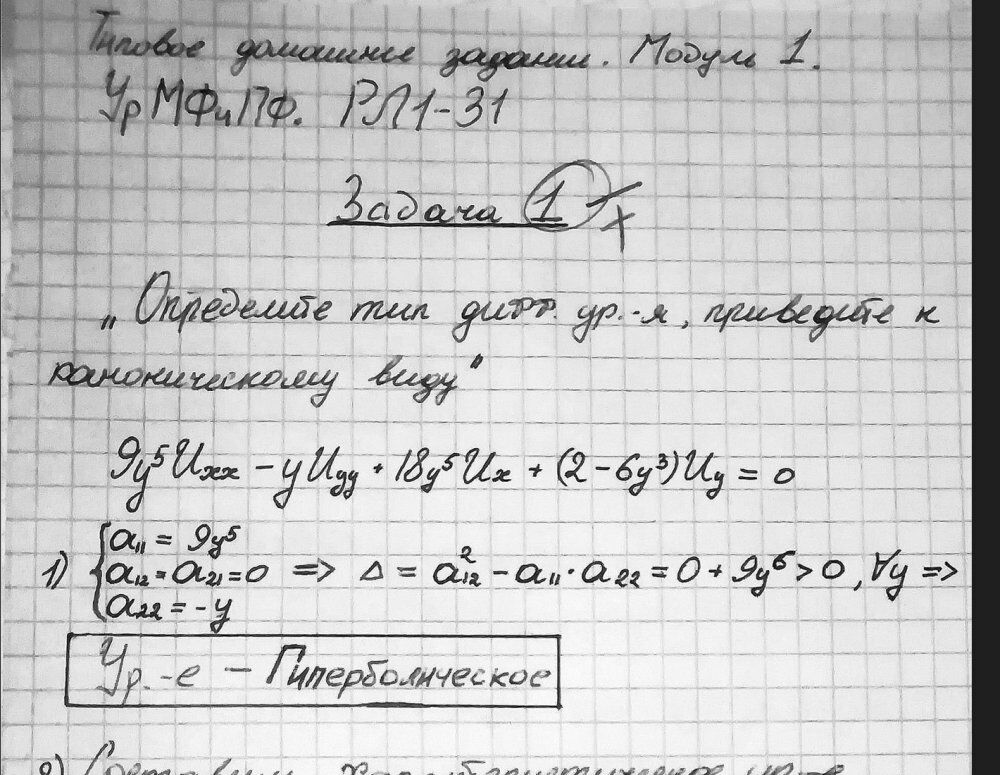 Типовое домашнее задание. Модуль 1.
УрМФиПФ. РЛ1-31
Задача 1
„Определите тип дифф. ур.-я, приведите к
каноническому виду"
9y⁵Uxx - yUyy + 18y⁵Ux + (2 - 6y³)Uy = 0
a₁₁ = 9y⁵
1) a₁₂ = a₂₁ = 0 => Δ = a₁₂² - a₁₁·a₂₂ = 0 + 9y⁶ > 0, ∀y =>
a₂₂ = -y
Ур.-е - Гиперболическое
2) Составим характеристическое ур-е